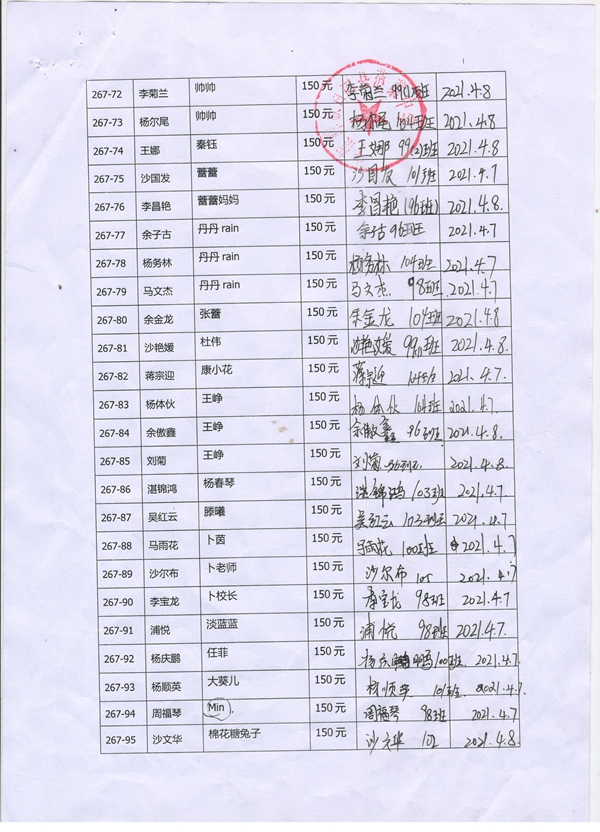 267-72 李菊兰 帅帅 150元 李菊兰 99(1)班 2021.4.8
267-73 杨尔尾 帅帅 150元 杨尔尾 104班 2021.4.8
267-74 王娜 秦钰 150元 王娜 99(2)班 2021.4.8
267-75 沙国发 蕾蕾 150元 沙国发 101班 2021.4.7
267-76 李昌艳 蕾蕾妈妈 150元 李昌艳 (96班) 2021.4.8.
267-77 余子古 丹丹 rain 150元 余子古 96班 2021.4.7
267-78 杨务林 丹丹 rain 150元 杨务林 104班 2021.4.7
267-79 马文杰 丹丹 rain 150元 马文杰 98班 2021.4.7
267-80 余金龙 张蕾 150元 余金龙 104班 2021.4.8
267-81 沙艳媛 杜伟 150元 沙艳媛 99(1)班 2021.4.8.
267-82 蒋宗迎 康小花 150元 蒋宗迎 104班 2021.4.7.
267-83 杨体伙 王峥 150元 杨体伙 104班 2021.4.7.
267-84 余傲鑫 王峥 150元 余傲鑫 96班 2021.4.8.
267-85 刘菊 王峥 150元 刘菊 96班 2021.4.8.
267-86 湛锦鸿 杨春琴 150元 湛锦鸿 103班 2021.4.7.
267-87 吴红云 滕曦 150元 吴红云 103班 2021.4.7
267-88 马雨花 卜茵 150元 马雨花 100班 2021.4.7
267-89 沙尔布 卜老师 150元 沙尔布 105 2021.4.7
267-90 李宝龙 卜校长 150元 李宝龙 98班 2021.4.7
267-91 浦悦 淡蓝蓝 150元 浦悦 98班 2021.4.7.
267-92 杨庆鹏 任菲 150元 杨庆鹏 100班. 2021.4.7
267-93 杨顺英 大葵儿 150元 杨顺英 101班. 2021.4.7.
267-94 周福琴 Min 150元 周福琴 98班 2021.4.7
267-95 沙文华 棉花糖兔子 150元 沙文华 102 2021.4.8.